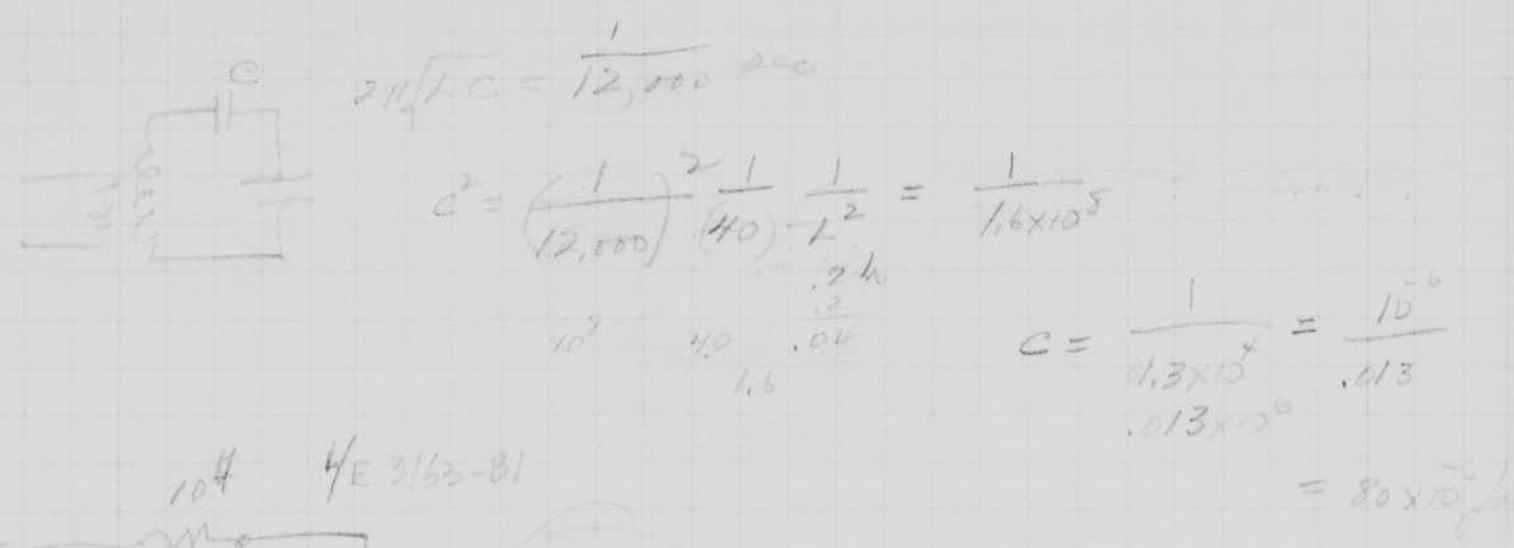 C
2π√LC = 1/12,000 sec
C² = (1/12,000)² 1/(40) 1/L² = 1/1.6×10⁸
.2 h
.2
10⁸ 40 .04
1.6
C = 1/1.3×10⁴ = 10⁻⁶/.013
.013×10⁶
= 80×10⁻⁶
10H 4E 3163-B1